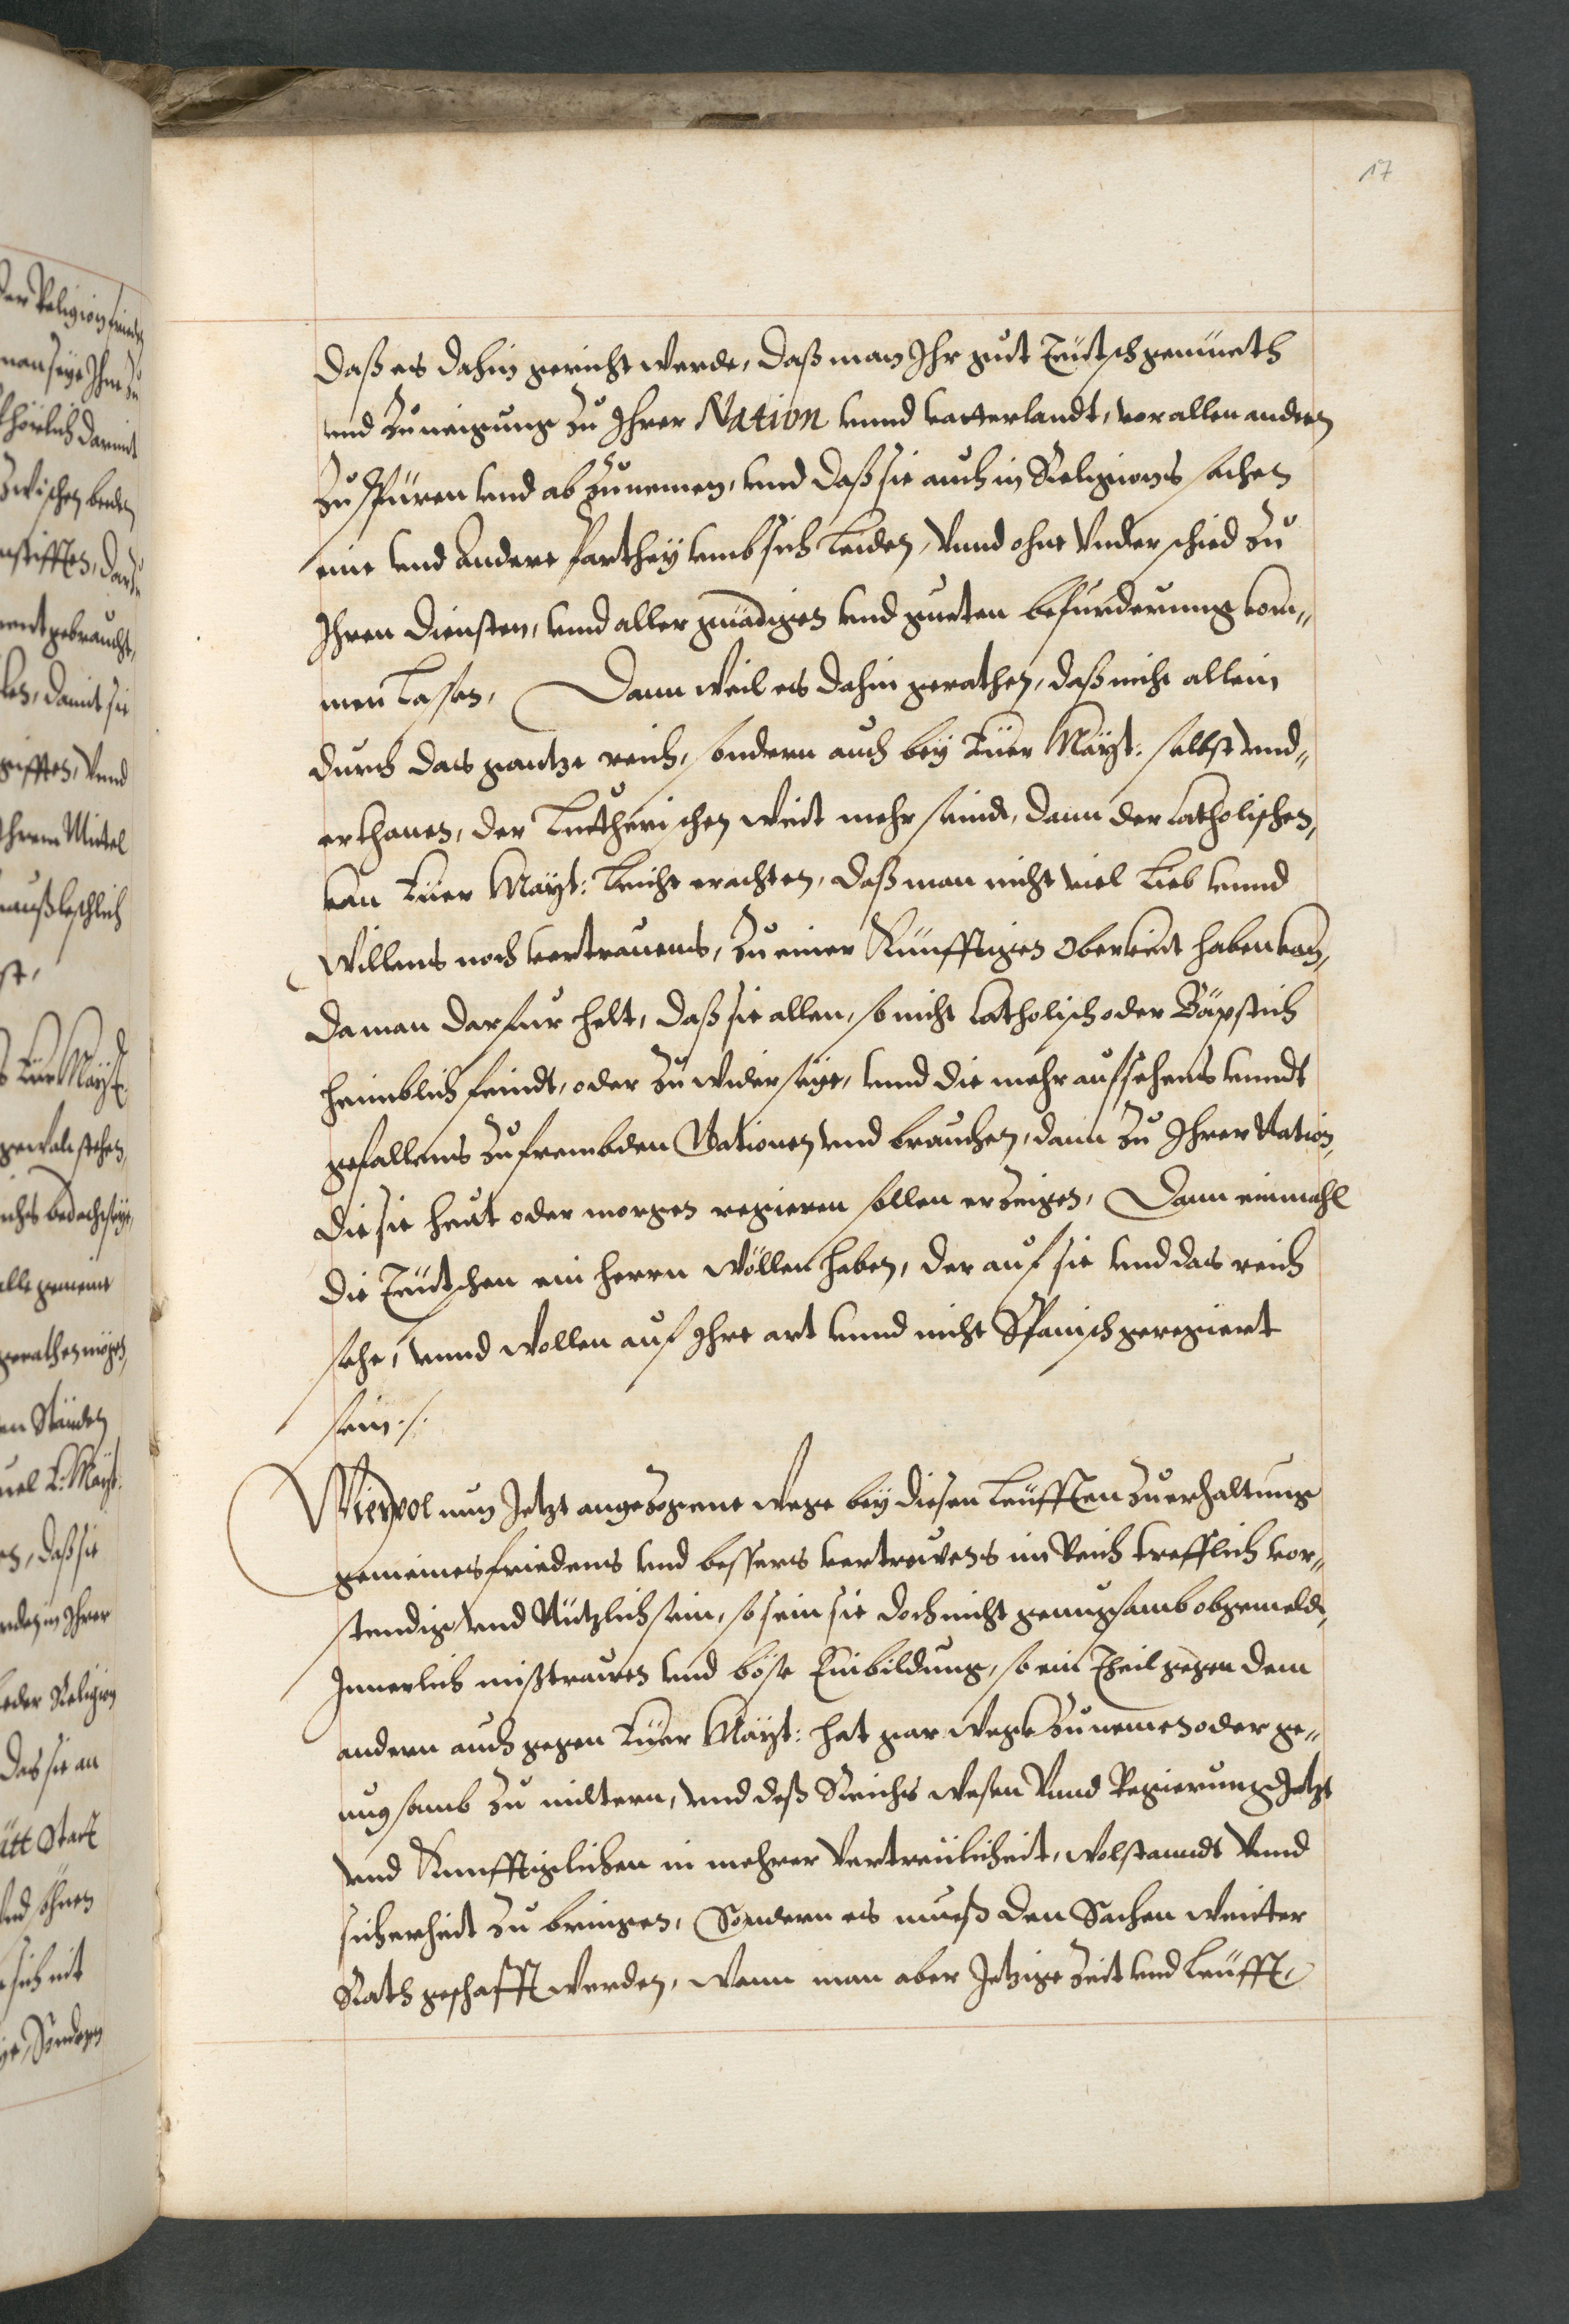 17
daß es dahin gericht werde, daß man Ihr gut Teütsch gemüeth
und Zuneigung zu Ihrer Nation unnd vatterlandt, vor allen andern
zu spüren und ab zunemen, und daß sie auch in Religions sachen
eine und andere Parthey umb sich leiden, Vnnd ohne Vnderschied zu
Ihren diensten, unnd aller gnädigen und gueten befürderung kom„
men lassen, Dann weil es dahin gerathen, daß nicht allein
durch das gantze reich, sondern auch bey Eüer Mayt: selbst und„
erthanen, der Lutherischen weit mehr seindt, dann der Catholischen,
kan Eüer Mayt: leicht erachten, daß man nicht viel Lieb unnd
willens noch vertrauens, zu einer Künfftigen Oberkeit haben kan,
da man darfur helt, daß sie allen, so nicht Catholisch oder Bäpstich
heimblich feindt, oder zu wider seye, unnd die mehr aufsehens unndt
gefallens zu frembden Nationen und brauchen, dann zu Ihrer Nation,
die sie heut oder morgen regieren sollen erzeigen, Dann einmahl
die Teütschen ein herrn wöllen haben, der auf sie und das reich
sehe, unnd wollen auf Ihre art unnd nicht Spanisch geregiert
sein ./.
Wiewol nun Jetzt angezogene wege bey diesen Leüfften zu erhaltung
gemeines friedens und bessers vertrewens im Reich trefflich vor„
stendig und Nützlich sein, so sein sie doch nicht genugsamb obgemeldt,
Innerlich mißtrawen und böse Einbildung, so ein Theil gegen dem
andern auch gegen Eüer Mayt: hat gar wegk zunemen oder ge„
nugsamb zu miltern, und deß Reichs wesen Vnnd Regierung Jetzt
und Kunfftiglichen in mehrer Vertreulicheit, wolstanndt Vnnd
sicherheit zu bringen, Sondern es mueß den Sachen weitter
Rath geschafft werden, Wann man aber Jetzige Zeit und Leüfft,